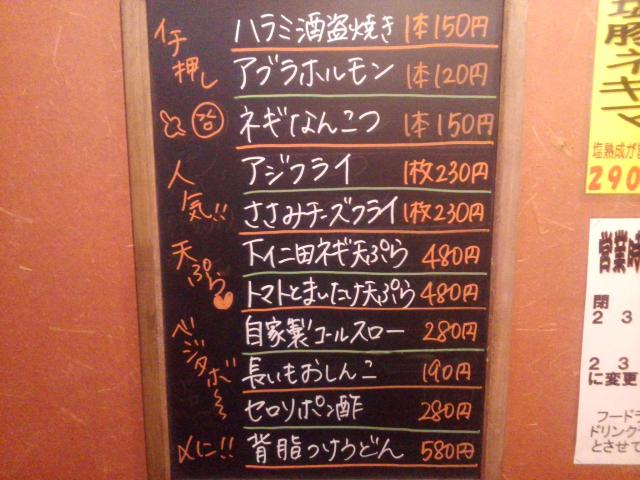 イチ押し
ハラミ酒盗焼き 1本150円
アブラホルモン 1本120円
ネギなんこつ 1本150円
人気!!
アジフライ 1枚230円
ささみチーズフライ 1枚230円
天ぷら
下仁田ネギ天ぷら 480円
トマトとまいたけ天ぷら 480円
ベジタボ〜〜
自家製コールスロー 280円
長いもおしんこ 190円
セロリポン酢 280円
〆に!!
背脂つけうどん 580円
塩豚ネギマ
塩熟成が
290
営業時
閉
2 3
2 3
に変更
フードラ
ドリンク
とさせて